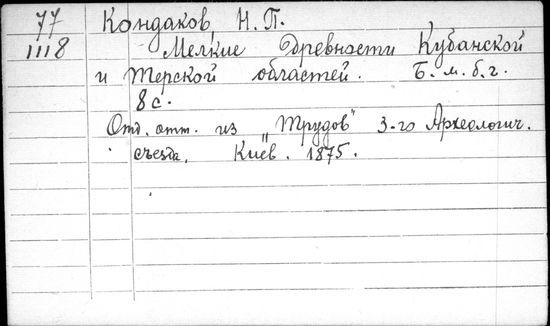 77 Кондаков, Н. П.
1118 Мелкие древности Кубанской
и Терской областей. Б. м. б. г.
8 с.
Отд. отт. из „Трудов" 3-го Археологич.
съезда. Киев. 1875.